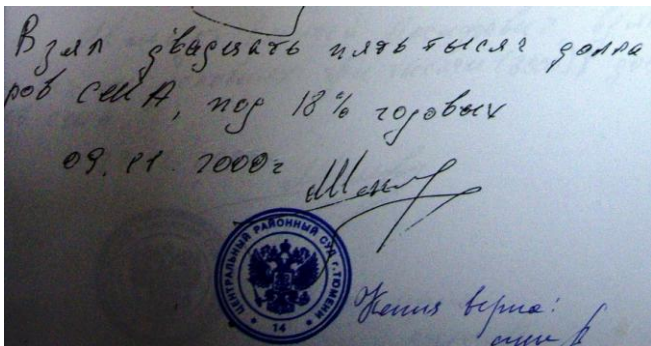 Взял двадцать пять тысяч долла
ров США, под 18% годовых
09.11.2000г
ЦЕНТРАЛЬНЫЙ РАЙОННЫЙ СУД г.ТЮМЕНИ
14
Копия верна: